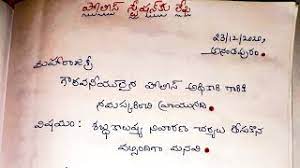 పోలీస్ స్టేషన్‌కు లేఖ
23/12/2020,
అనంతపురం.
మహారాజశ్రీ
గౌరవనీయులైన పోలీస్ అధికారి గారికి
నమస్కరించి వ్రాయునది.
విషయం: శబ్దకాలుష్య నివారణా చర్యలు తీసుకొన
వల్సిందిగా మనవి.